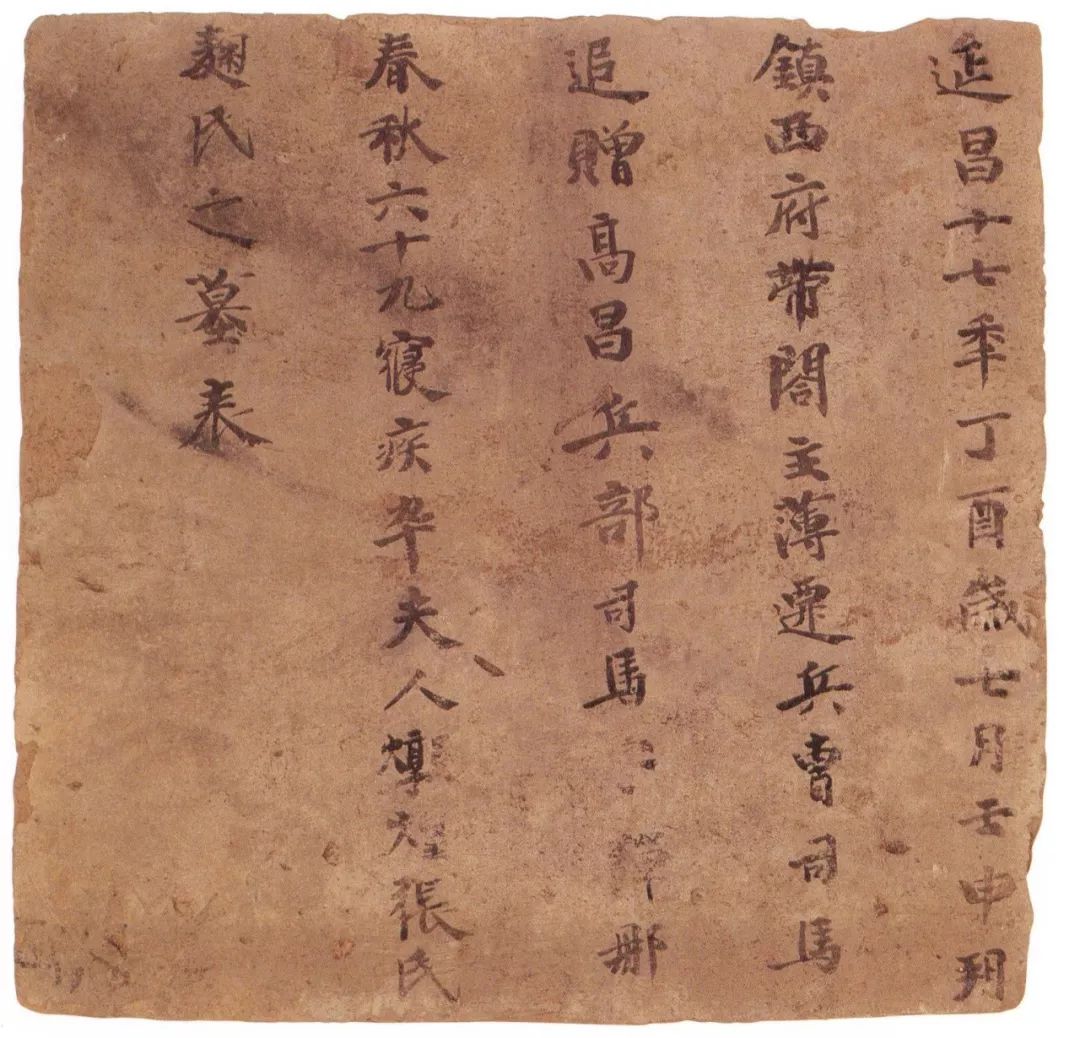 延昌十七年丁酉歲七月壬申朔
鎮西府帶閤主薄遷兵曹司馬
追贈高昌兵部司馬彈那
春秋六十九寢疾卒夫人燉煌張氏
麹氏之墓表